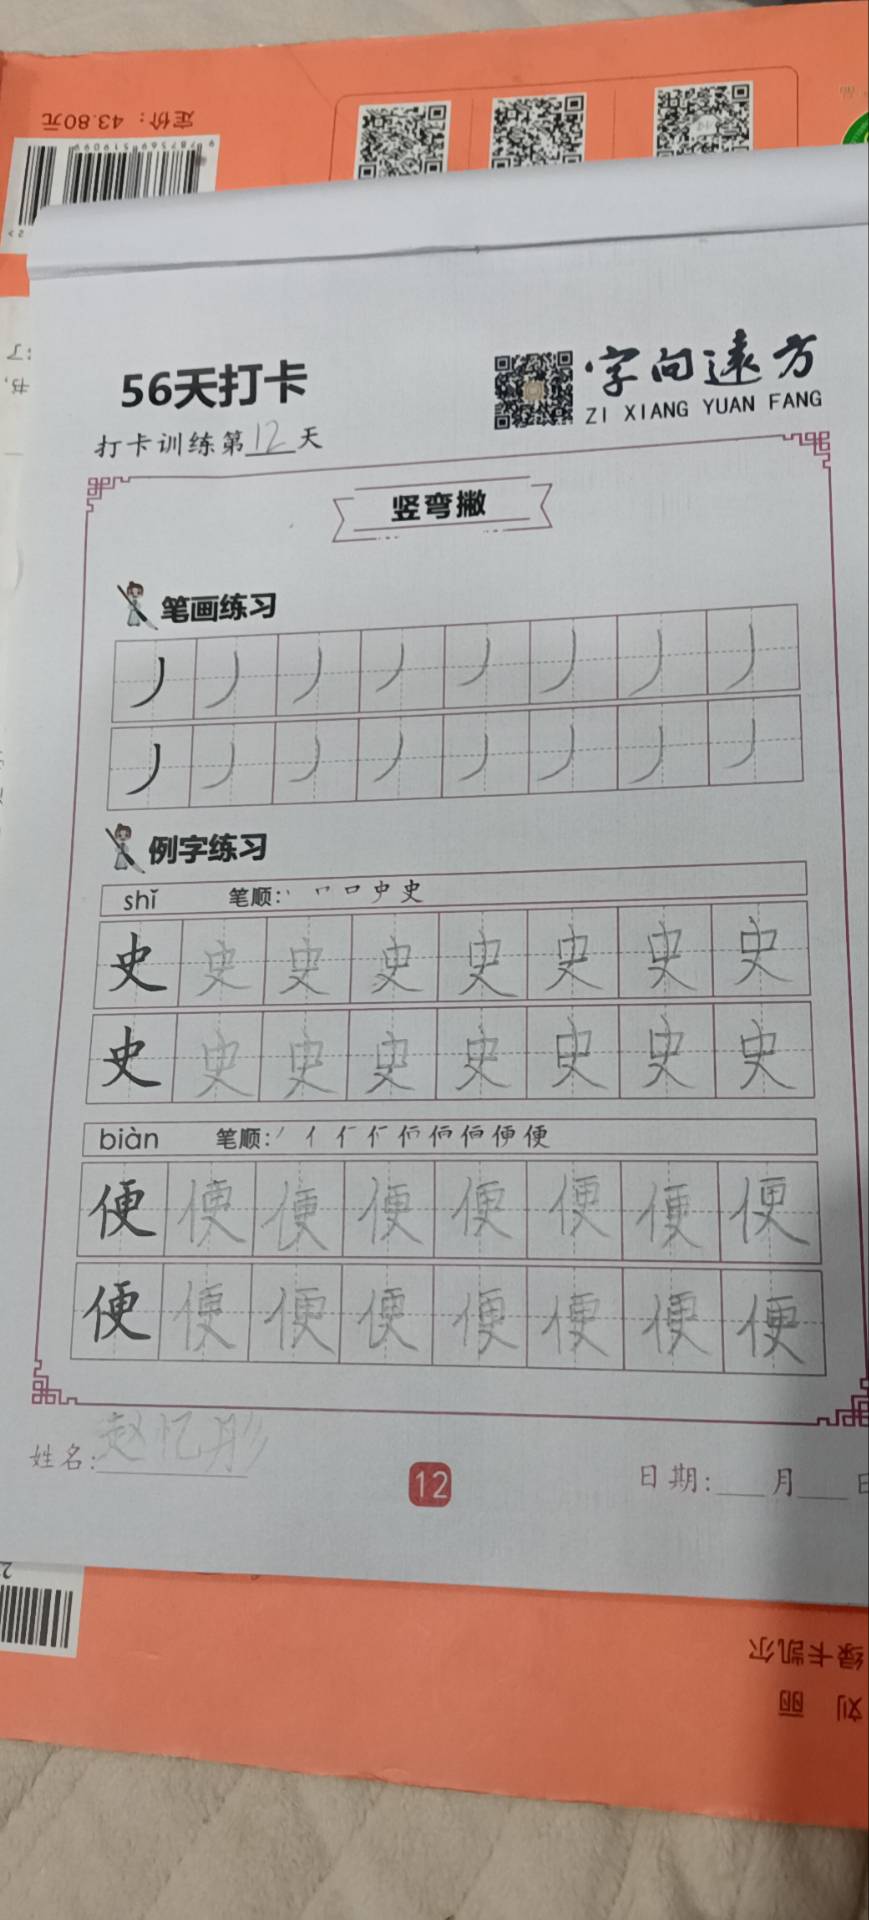 定价：43.80元
56天打卡
字向遠方
ZI XIANG YUAN FANG
打卡训练第12天
竖弯撇
笔画练习
例字练习
shǐ 笔顺:
史 史 史 史 史 史 史 史
史 史 史 史 史 史 史 史
biàn 笔顺:
便 便 便 便 便 便 便 便
便 便 便 便 便 便 便 便
姓名:赵忆彤
12
日期:___月___日
绿卡凯尔
刘 丽